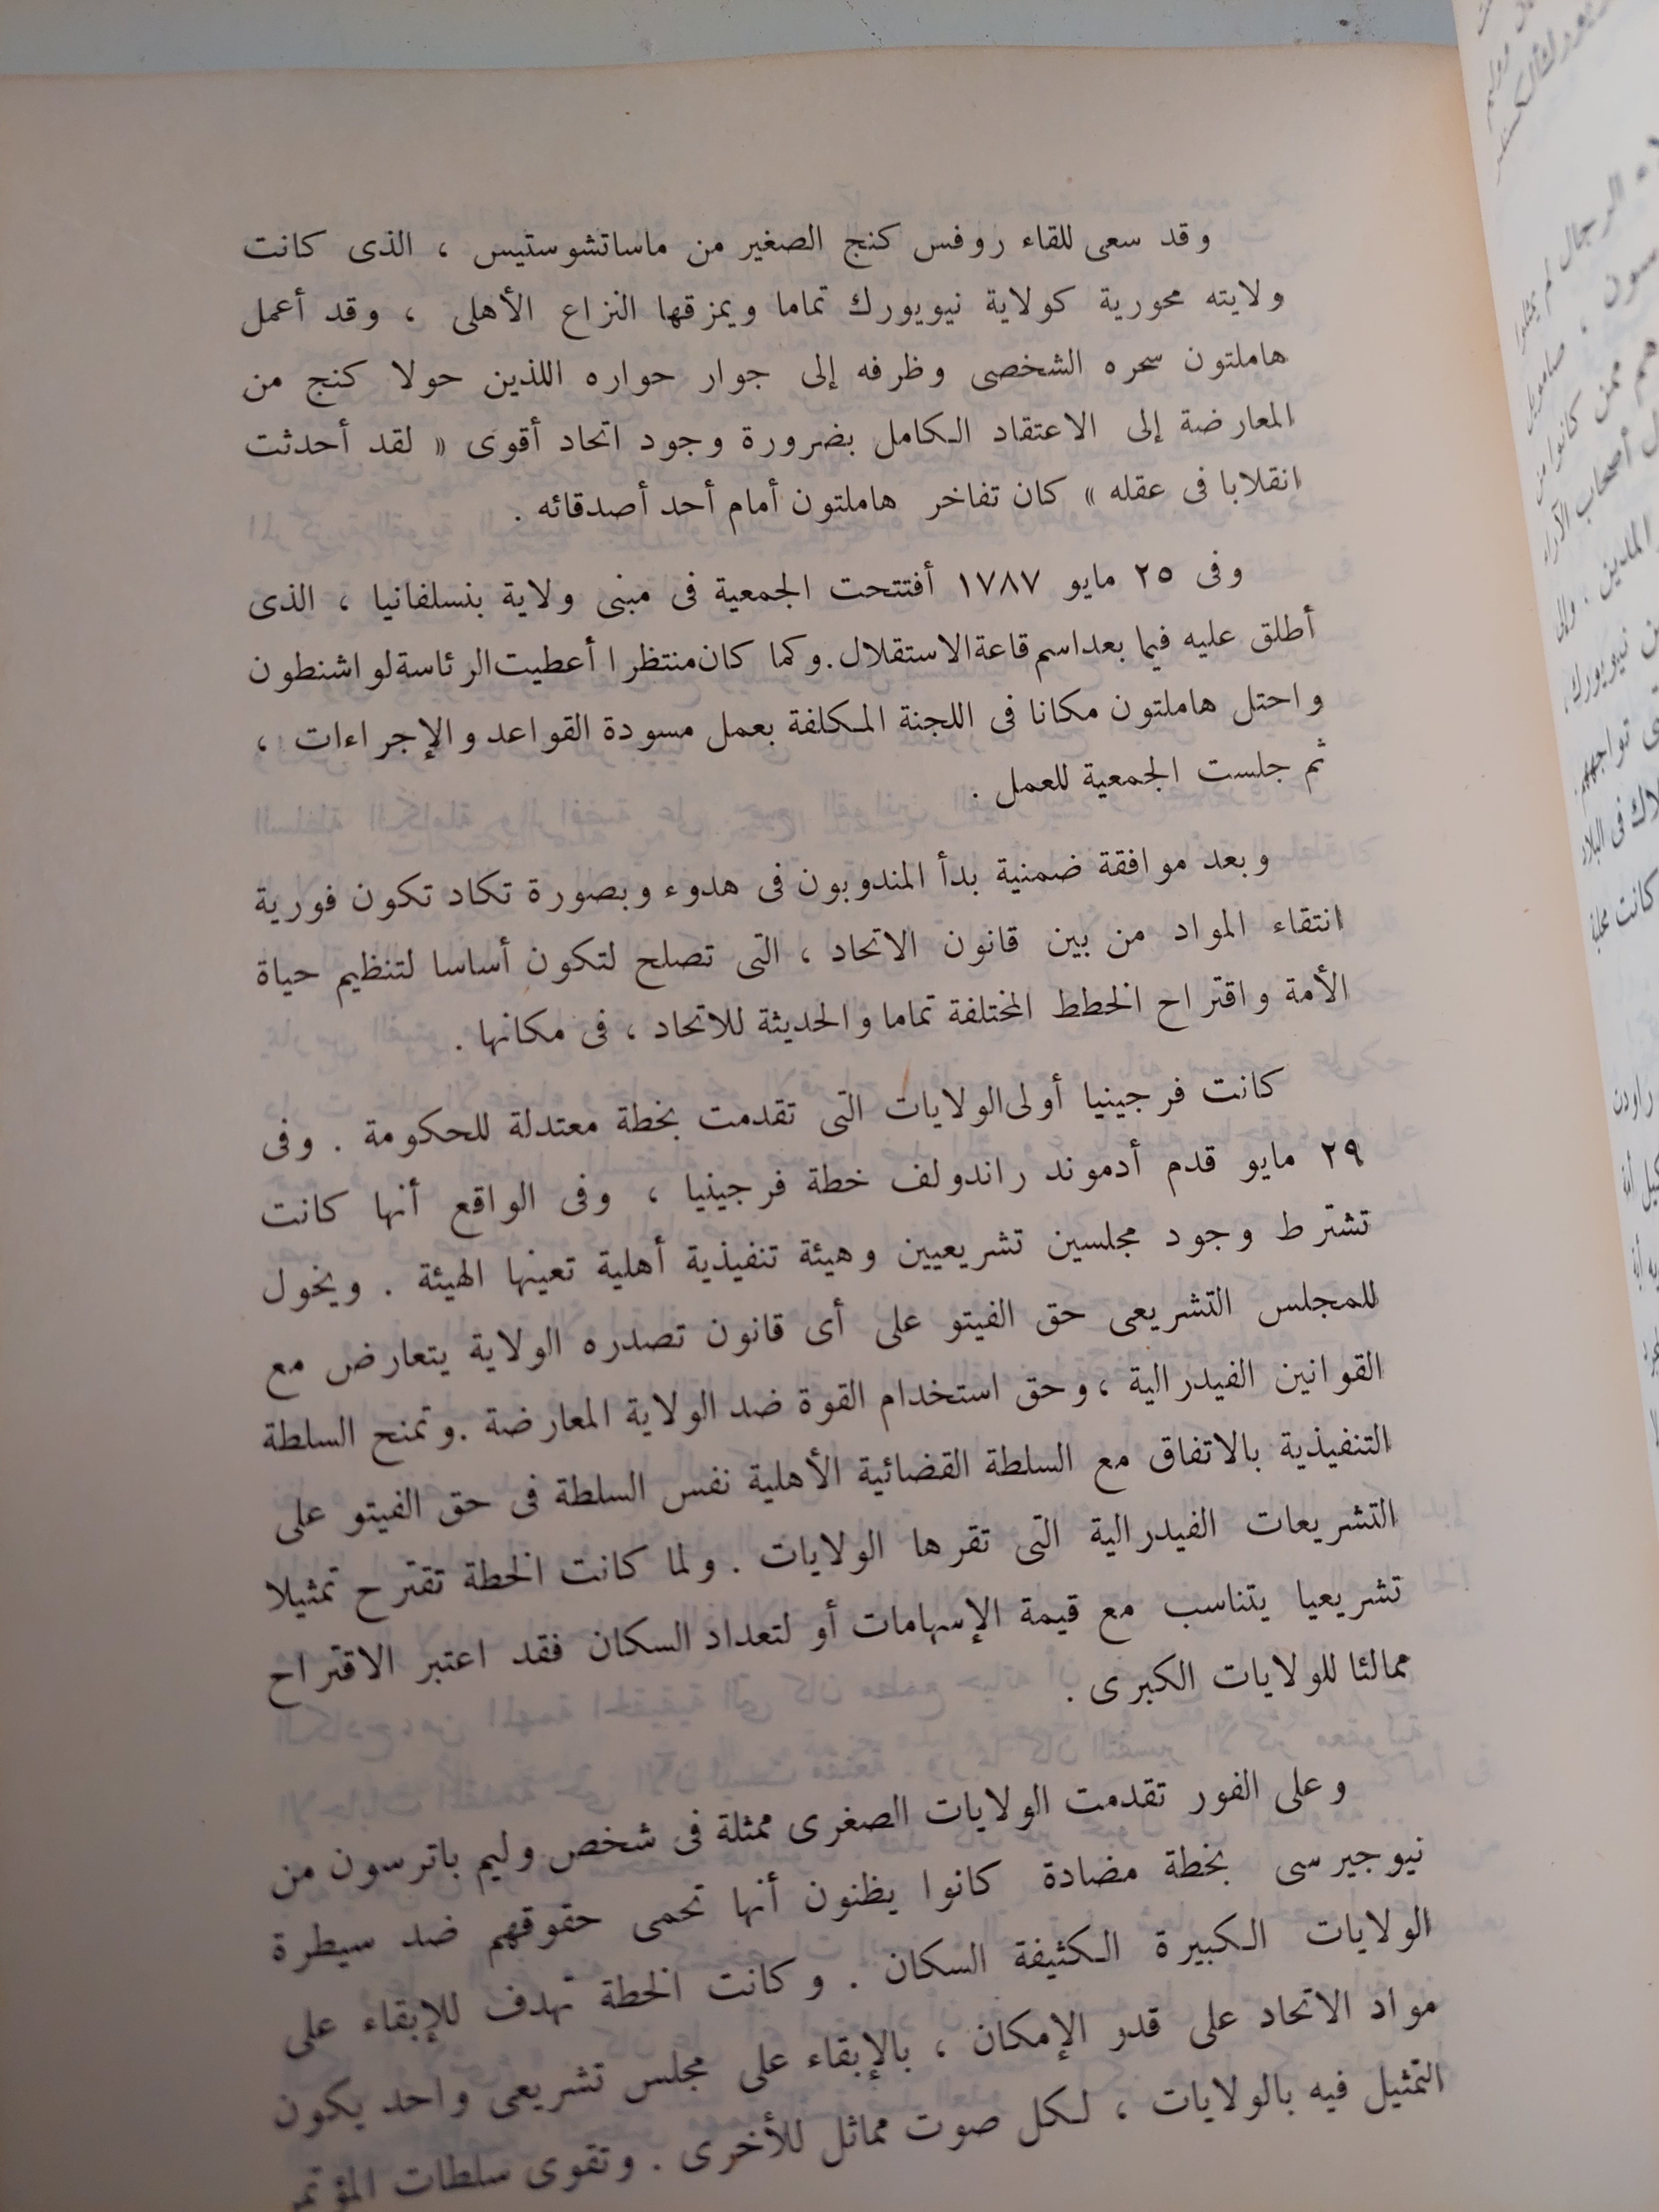 وقد سعى للقاء روفس كنج الصغير من ماساتشوستيس ، الذى كانت
ولايته محورية كولاية نيويورك تماما ويمزقها النزاع الأهلى ، وقد أعمل
هاملتون سحره الشخصى وظرفه إلى جوار حواره اللذين حولا كنج من
المعارضة إلى الاعتقاد الكامل بضرورة وجود اتحاد أقوى « لقد أحدثت
انقلابا فى عقله » كان تفاخر هاملتون أمام أحد أصدقائه .
وفى ٢٥ مايو ١٧٨٧ أفتتحت الجمعية فى مبنى ولاية بنسلفانيا ، الذى
أطلق عليه فيما بعد اسم قاعة الاستقلال . وكما كان منتظرا أعطيت الرئاسة لواشنطون
واحتل هاملتون مكانا فى اللجنة المكلفة بعمل مسودة القواعد والإجراءات ،
ثم جلست الجمعية للعمل .
وبعد موافقة ضمنية بدأ المندوبون فى هدوء وبصورة تكاد تكون فورية
انتقاء المواد من بين قانون الاتحاد ، التى تصلح لتكون أساسا لتنظيم حياة
الأمة واقتراح الخطط المختلفة تماما والحديثة للاتحاد ، فى مكانها .
كانت فرجينيا أولى الولايات التى تقدمت بخطة معتدلة للحكومة . وفى
٢٩ مايو قدم أدموند راندولف خطة فرجينيا ، وفى الواقع أنها كانت
تشترط وجود مجلسين تشريعيين وهيئة تنفيذية أهلية تعينها الهيئة . ويخول
للمجلس التشريعى حق الفيتو على أى قانون تصدره الولاية يتعارض مع
القوانين الفيدرالية ، وحق استخدام القوة ضد الولاية المعارضة . وتمنح السلطة
التنفيذية بالاتفاق مع السلطة القضائية الأهلية نفس السلطة فى حق الفيتو على
التشريعات الفيدرالية التى تقرها الولايات . ولما كانت الخطة تقترح تمثيلا
تشريعيا يتناسب مع قيمة الإسهامات أو لتعداد السكان فقد اعتبر الاقتراح
ممالئا للولايات الكبرى .
وعلى الفور تقدمت الولايات الصغرى ممثلة فى شخص وليم باترسون من
نيوجيرسى بخطة مضادة كانوا يظنون أنها تحمى حقوقهم ضد سيطرة
الولايات الكبيرة الكثيفة السكان . وكانت الخطة تهدف للإبقاء على
مواد الاتحاد على قدر الإمكان ، بالإبقاء على مجلس تشريعى واحد يكون
التمثيل فيه بالولايات ، لكل صوت مماثل للأخرى . وتقوى سلطات المؤتمر